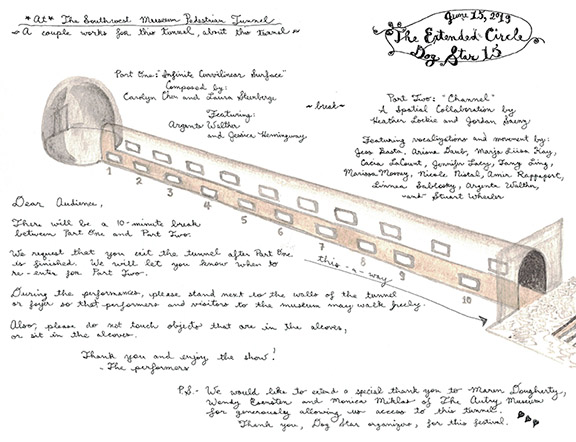 *At* The Southwest Museum Pedestrian Tunnel
~ A couple works for this tunnel, about this tunnel ~
June 15, 2019
The Extended Circle
Dog Star 15
Part One: "Infinite Curvilinear Surface"
Composed by:
Carolyn Chen and Laura Steenberge
Featuring:
Argenta Walther
and Jessica Hemingway
~ break ~
Part Two: "Channel"
A Spatial Collaboration by
Heather Lockie and Jordan Saenz
Featuring vocalizations and movement by:
Jess Basta, Ariana Daub, Marja Liisa Kay,
Cacia LaCount, Jennifer Lacy, Fang Ling,
Marissa Mooney, Nicole Nistal, Amir Rappaport,
Linnea Sablosky, Argenta Walther,
and Stuart Wheeler
1 2 3 4 5 6 7 8 9 10
this-a-way
Dear Audience,
There will be a 10-minute break
between Part One and Part Two.
We request that you exit the tunnel after Part One
is finished. We will let you know when to
re-enter for Part Two.
During the performances, please stand next to the walls of the tunnel
or foyer so that performers and visitors to the museum may walk freely.
Also, please do not touch objects that are in the alcoves,
or sit in the alcoves.
Thank you and enjoy the show!
- The performers
P.S.- We would like to extend a special thank you to Maren Dougherty,
Wendy and Monica Miklas of The Autry Museum
for generously allowing us access to this tunnel.
Thank you, Dog Star organizers, for this festival.